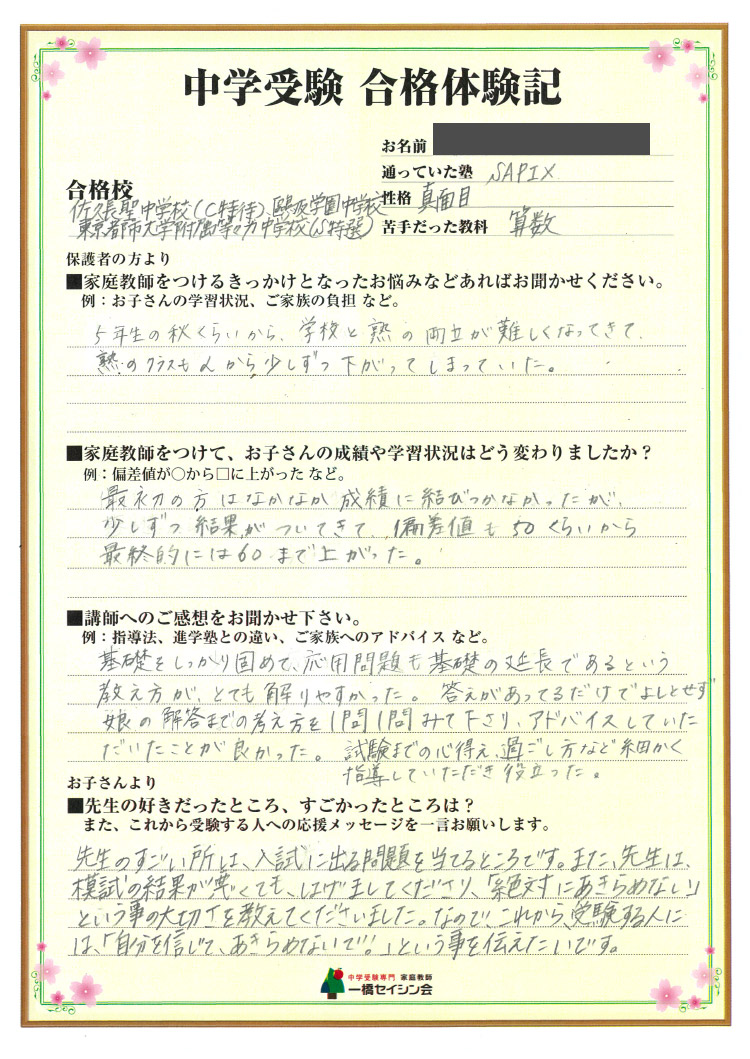 中学受験 合格体験記
お名前
通っていた塾 SAPIX
合格校
性格 真面目
佐久長聖中学校(C特待)、鷗友学園中学校
東京都市大学附属等々力中学校(S特選)
苦手だった教科 算数
保護者の方より
■家庭教師をつけるきっかけとなったお悩みなどあればお聞かせください。
例：お子さんの学習状況、ご家族の負担 など。
5年生の秋くらいから、学校と熟の両立が難しくなってきて、
熟のクラスもαから少しずつ下がってしまっていた。
■家庭教師をつけて、お子さんの成績や学習状況はどう変わりましたか？
例：偏差値が○から□に上がった など。
最初の方はなかなか成績に結びつかなかったが、
少しずつ結果がついてきて、偏差値も50くらいから
最終的には60まで上がった。
■講師へのご感想をお聞かせ下さい。
例：指導法、進学塾との違い、ご家族へのアドバイス など。
基礎をしっかり固めて、応用問題も基礎の延長であるという
教え方が、とても解りやすかった。答えがあってるだけでよしとせず
娘の解答までの考え方を1問1問みて下さり、アドバイスしていた
だいたことが良かった。試験までの心得え、過ごし方など細かく
指導していただき役立った。
お子さんより
■先生の好きだったところ、すごかったところは？
また、これから受験する人への応援メッセージを一言お願いします。
先生のすごい所は、入試に出る問題を当てるところです。また、先生は、
模試の結果が悪くても、はげましてくださり、「絶対にあきらめない」
という事の大切さを教えてくださいました。なので、これから、受験する人に
は、「自分を信じて、あきらめないで！」という事を伝えたいです。
中学受験専門 家庭教師
一橋セイシン会